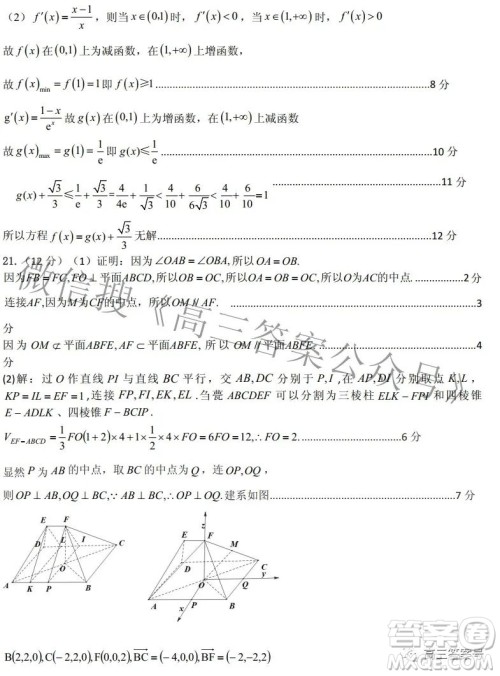 （2）f′(x)=(x−1)/x，则当x∈(0,1)时，f′(x)<0，当x∈(1,+∞)时，f′(x)>0
故f(x)在(0,1)上为减函数，在(1,+∞)上增函数，
故f(x)min=f(1)=1即f(x)≥1……8分
g′(x)=(1−x)/e^x故g(x)在(0,1)上为增函数，在(1,+∞)上减函数
故g(x)max=g(1)=1/e即g(x)≤1/e……10分
g(x)+√3/3≤1/e+√3/3=4/(4e)+√3/3<4/10+6/(6√3)<4/10+6/10=1……11分
所以方程f(x)=g(x)+√3/3无解……12分
21.（12分）（1）证明：因为∠OAB=∠OBA,所以OA=OB.
因为FB=FC,FO⊥平面ABCD,所以OB=OC,所以OA=OB=OC,所以O为AC的中点.……2分
连接AF,因为M为CF的中点，所以OM∥AF.……3
分
因为OM⊄平面ABFE,AF⊂平面ABFE，所以OM∥平面ABFE……4
分
(2)解：过O作直线PI与直线BC平行，交AB,DC分别于P,I,在AP,DI分别取点K,L，
KP=IL=EF=1,连接FP,FI,EK,EL.刍甍ABCDEF可以分割为三棱柱ELK−FPI和四棱锥
E−ADLK、四棱锥F−BCIP.
V_{EF−ABCD}=1/3FO(1+2)×4+1×1/2×4×FO=6FO=12,∴FO=2.……6分
显然P为AB的中点，取BC的中点为Q，连OP,OQ，
则OP⊥AB,OQ⊥BC,∵AB⊥BC,∴OP⊥OQ.建系如图……7分
E F D L I C O A K P B
z E F M D O C y Q A P B x
B(2,2,0),C(−2,2,0),F(0,0,2),BC=(−4,0,0),BF=(−2,−2,2)
微信搜《高三答案公众号》
高三答案号
答案圈